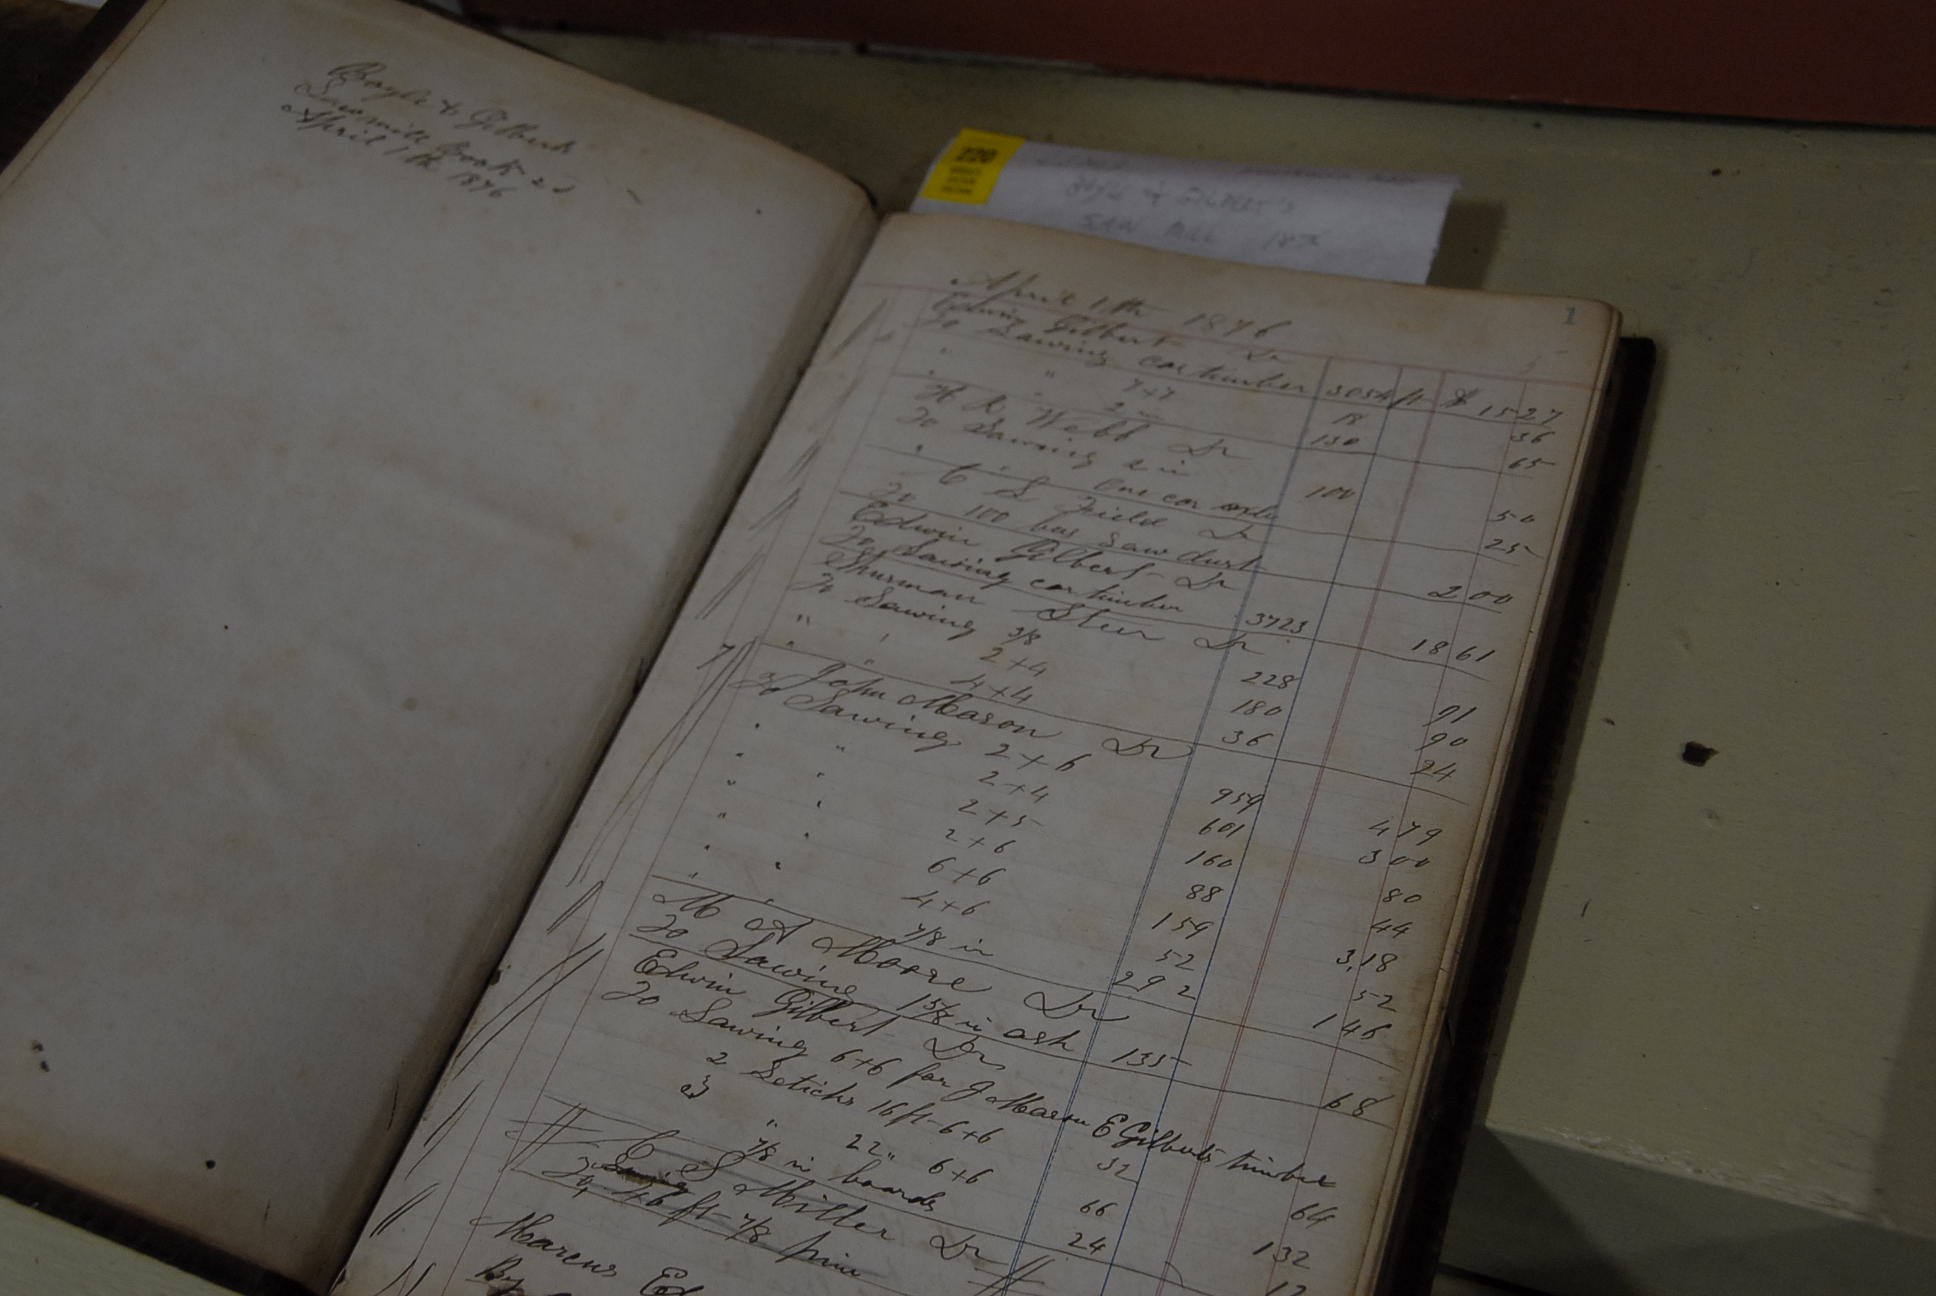 Boyle & Gilberts
Sawmill Book 2d
April 1th 1876
220
SAW MILL
1
April 1th 1876
Edwin Gilbert Dr
To Sawing car timber 3054 ft $ 15 27
" " 7+7 18 36
" " 2 in 130 65
H R Webb Dr
To Sawing 2 in 100 50
" " One car 25
C S Field Dr
To 100 bus Saw dust 2 00
Edwin Gilbert Dr
To Sawing car timber 3723 18 61
Shurman Steer Dr
To Sawing 3/8 228 91
" " 2+4 180 90
" " 4+4 36 24
John Mason Dr
To Sawing 2+6 959 4 79
" " 2+4 601 3 00
" " 2+5 160 80
" " 2+6 88 44
" " 6+6 159 3,18
" " 4+6 52 52
" " 7/8 in 292 1 46
M A Moore Dr
To Sawing 1 5/8 in ash 135 68
Edwin Gilbert Dr
To Sawing 6+6 for J Mason E Gilberts timber
2 Sticks 16 ft 6+6 32 64
3 " 22 " 6+6 66 1 32
7/8 in boards 24 12
C S Miller Dr
To 46 ft 7/8 pine
Marcus
By